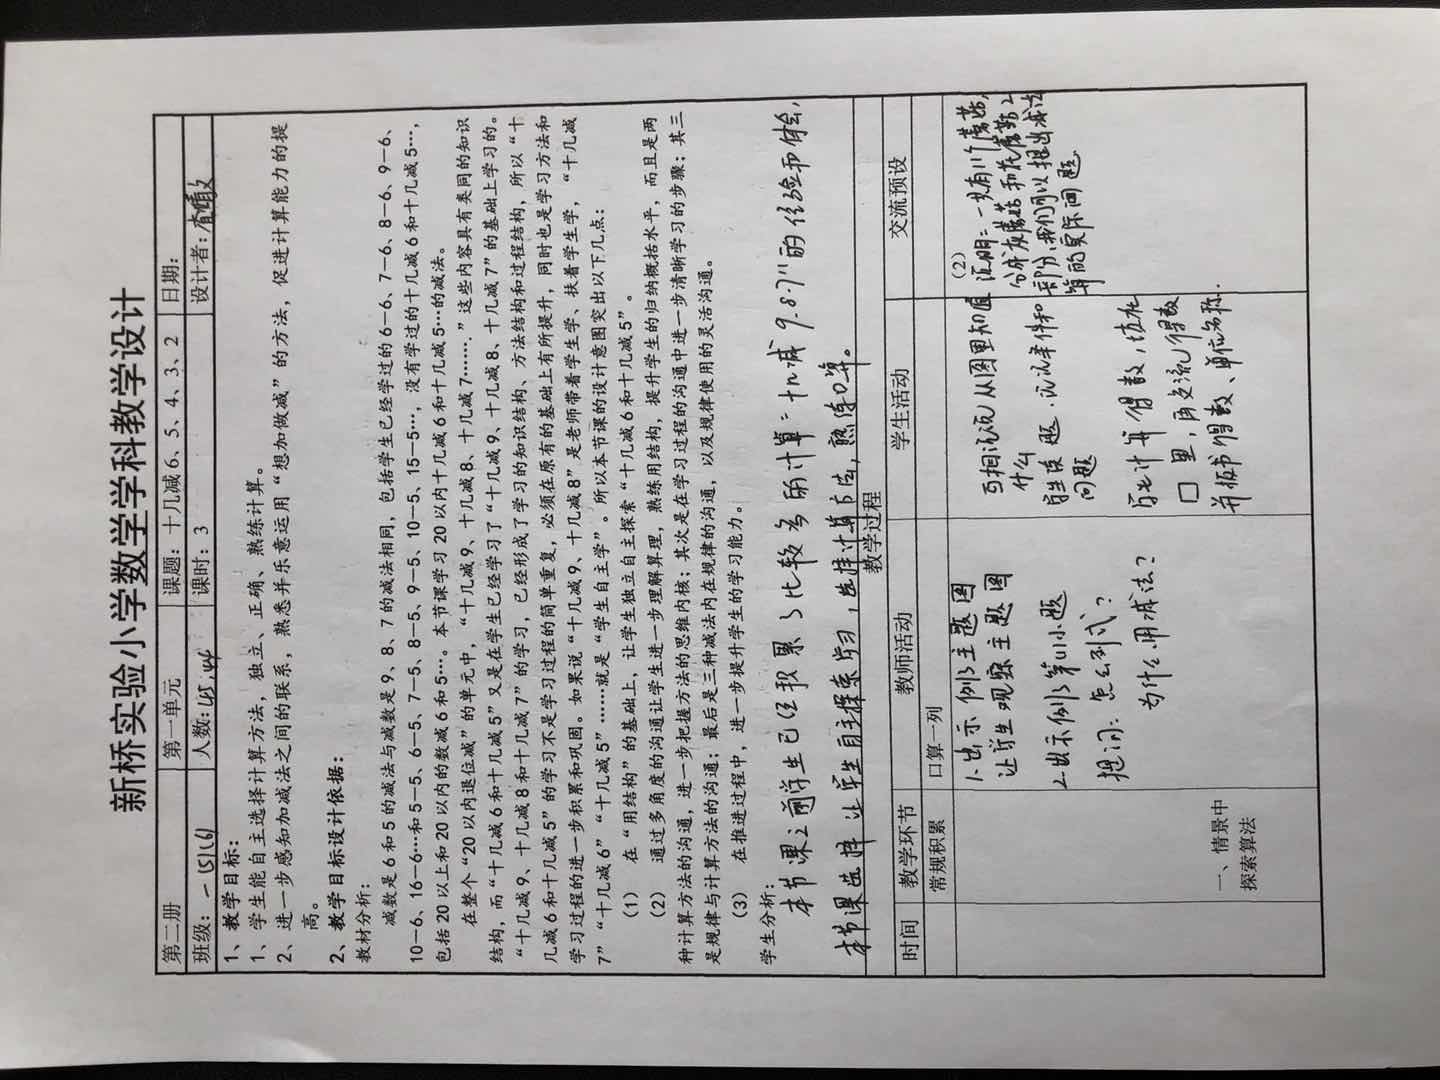 新桥实验小学数学学科教学设计
第二册 第一单元 课题：十几减6、5、4、3、2 日期：
班级：一(5)(6) 人数：45、44 课时：3 设计者：
1、教学目标：
1、学生能自主选择计算方法，独立、正确、熟练计算。
2、进一步感知加减法之间的联系，熟悉并乐意运用“想加做减”的方法，促进计算能力的提
高。
2、教学目标设计依据：
教材分析：
减数是6和5的减法与减数是9、8、7的减法相同，包括学生已经学过的6－6、7－6、8－6、9－6、
10－6、16－6…和5－5、6－5、7－5、8－5、9－5、10－5、15－5…，没有学过的十几减6和十几减5…，
包括20以上和20以内的数减6和5…。本节课学习20以内十几减6和十几减5…的减法。
在整个“20以内退位减”的单元中，“十几减9、十几减8、十几减7…….”这些内容具有类同的知识
结构，而“十几减6和十几减5”又是在学生已经学习了“十几减9、十几减8、十几减7”的基础上学习的。
“十几减9、十几减8和十几减7”的学习，已经形成了学习的知识结构、方法结构和过程结构，所以“十
几减6和十几减5”的学习不是学习过程的简单重复，必须在原有的基础上有所提升，同时也是学习方法和
学习过程的进一步积累和巩固。如果说“十几减9、十几减8”是老师带着学生学、扶着学生学，“十几减
7”“十几减6”“十几减5”……就是“学生自主学”。所以本节课的设计意图突出以下几点：
（1） 在“用结构”的基础上，让学生独立自主探索“十几减6和十几减5”。
（2） 通过多角度的沟通让学生进一步理解算理，熟练用结构，提升学生的归纳概括水平，而且是两
种计算方法的沟通，进一步把握方法的思维内核；其次是在学习过程的沟通中进一步清晰学习的步骤；其三
是规律与计算方法的沟通；最后是三种减法内在规律的沟通，以及规律使用的灵活沟通。
（3） 在推进过程中，进一步提升学生的学习能力。
学生分析：
本节课之前学生已经积累了比较多的计算=十几减9.8.7"的经验和体会，
本节课选择让学生自主探索学习，选择计算方法，熟练口算。
教学过程
时间 教学环节 教师活动 学生活动 交流预设
常规积累 口算一列
一、情景中
探索算法
1.出示例3主题图
让学生观察主题图
2.出示例3第(1)小题
提问：怎么列式？
为什么用减法？
互相说说从图里知道
什么
学生读题，说说条件和
问题
学生计算得数，填在
□里，再交流得数
并板书得数、单位名称.
（2）
说明：一共有11个蘑菇，
分成灰蘑菇和花蘑菇2
部分，我们可以提出减法
算的实际问题.